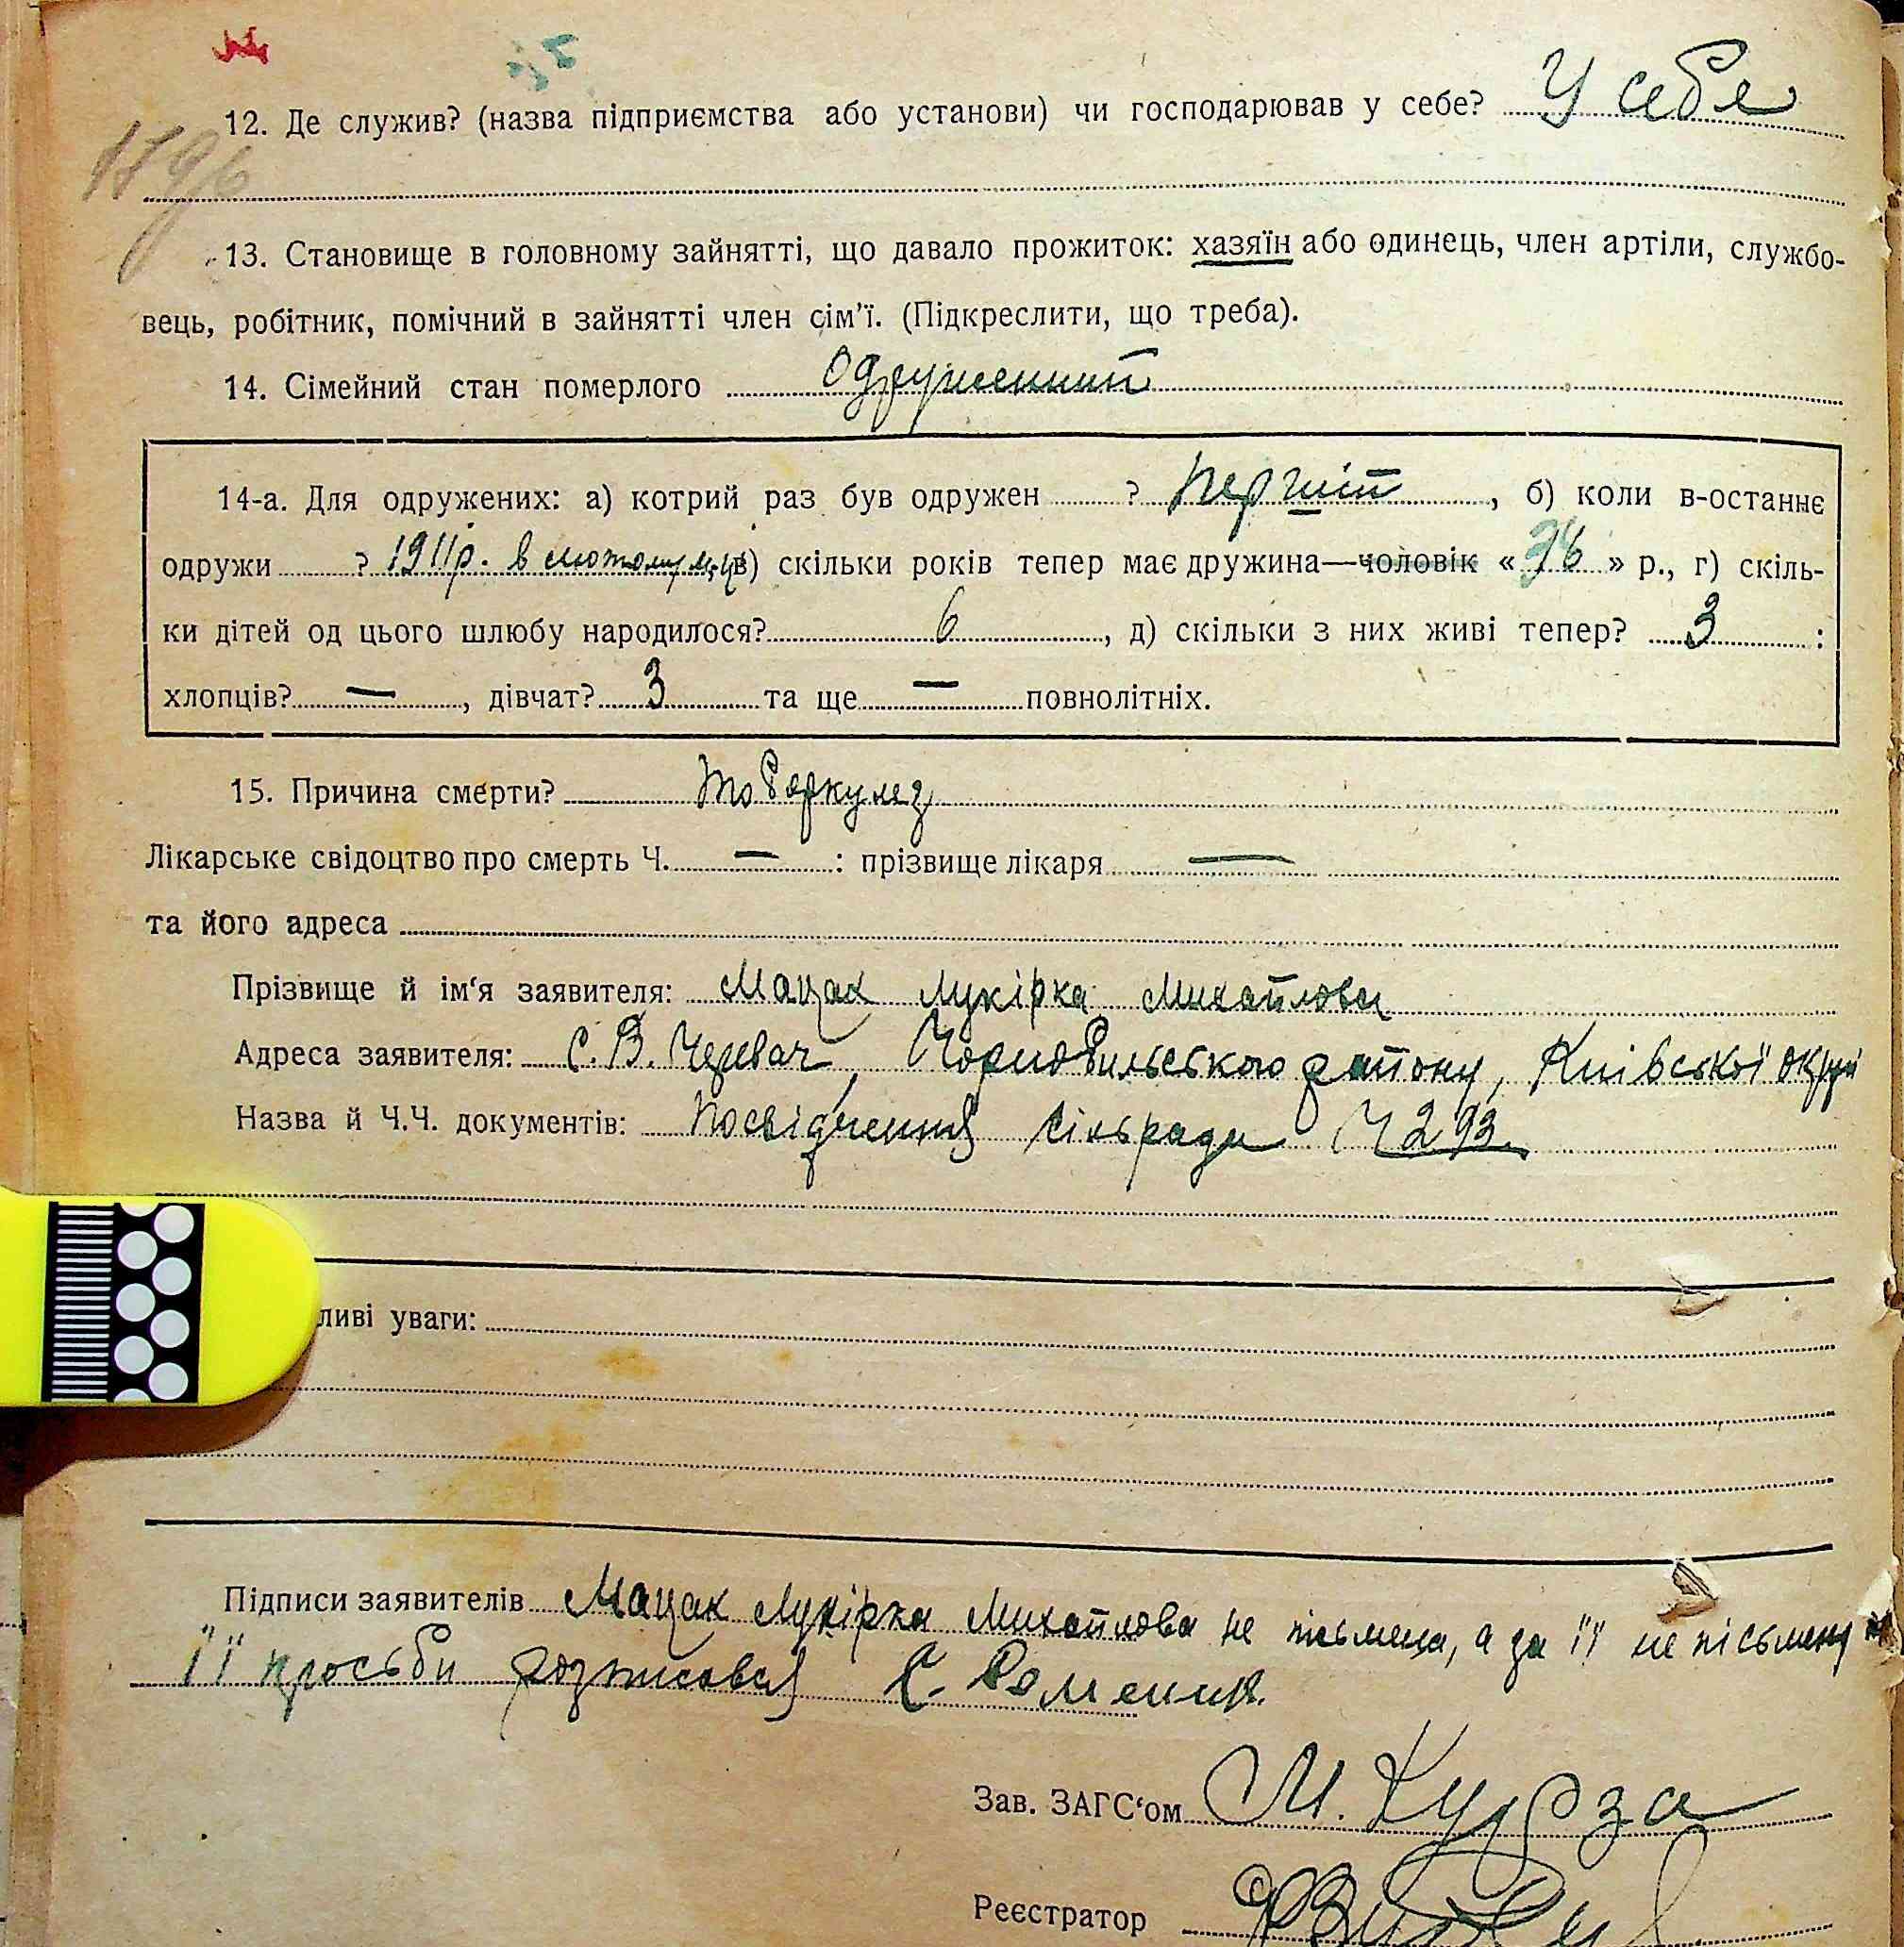 12. Де служив? (назва підприємства або установи) чи господарював у себе? У себе
13. Становище в головному зайнятті, що давало прожиток: хазяїн або одинець, член артіли, службо-
вець, робітник, помічний в зайнятті член сім'ї. (Підкреслити, що треба).
14. Сімейний стан померлого Одружений
14-а. Для одружених: а) котрий раз був одружен ? перший, б) коли в-останнє
одружи ? 1911р. в лютому м-ці в) скільки років тепер має дружина—чоловік « 36 » р., г) скіль-
ки дітей од цього шлюбу народилося? 6, д) скільки з них живі тепер? 3 :
хлопців? —, дівчат? 3 та ще — повнолітніх.
15. Причина смерти? тоберкулез
Лікарське свідоцтво про смерть Ч. — : прізвище лікаря —
та його адреса
Прізвище й ім‘я заявителя: Мацак Лукірка Михайлова
Адреса заявителя: С. В. Черевач, Чорнобильського району, Київської округи
Назва й Ч.Ч. документів: Посвідчення сільради Ч 293.
ливі уваги:
Підписи заявителів Мацак Лукірка Михайлова не письмена, а за її не пісьмену
її просьби розписався С.
Зав. ЗАГС‘ом М. Курза
Реєстратор